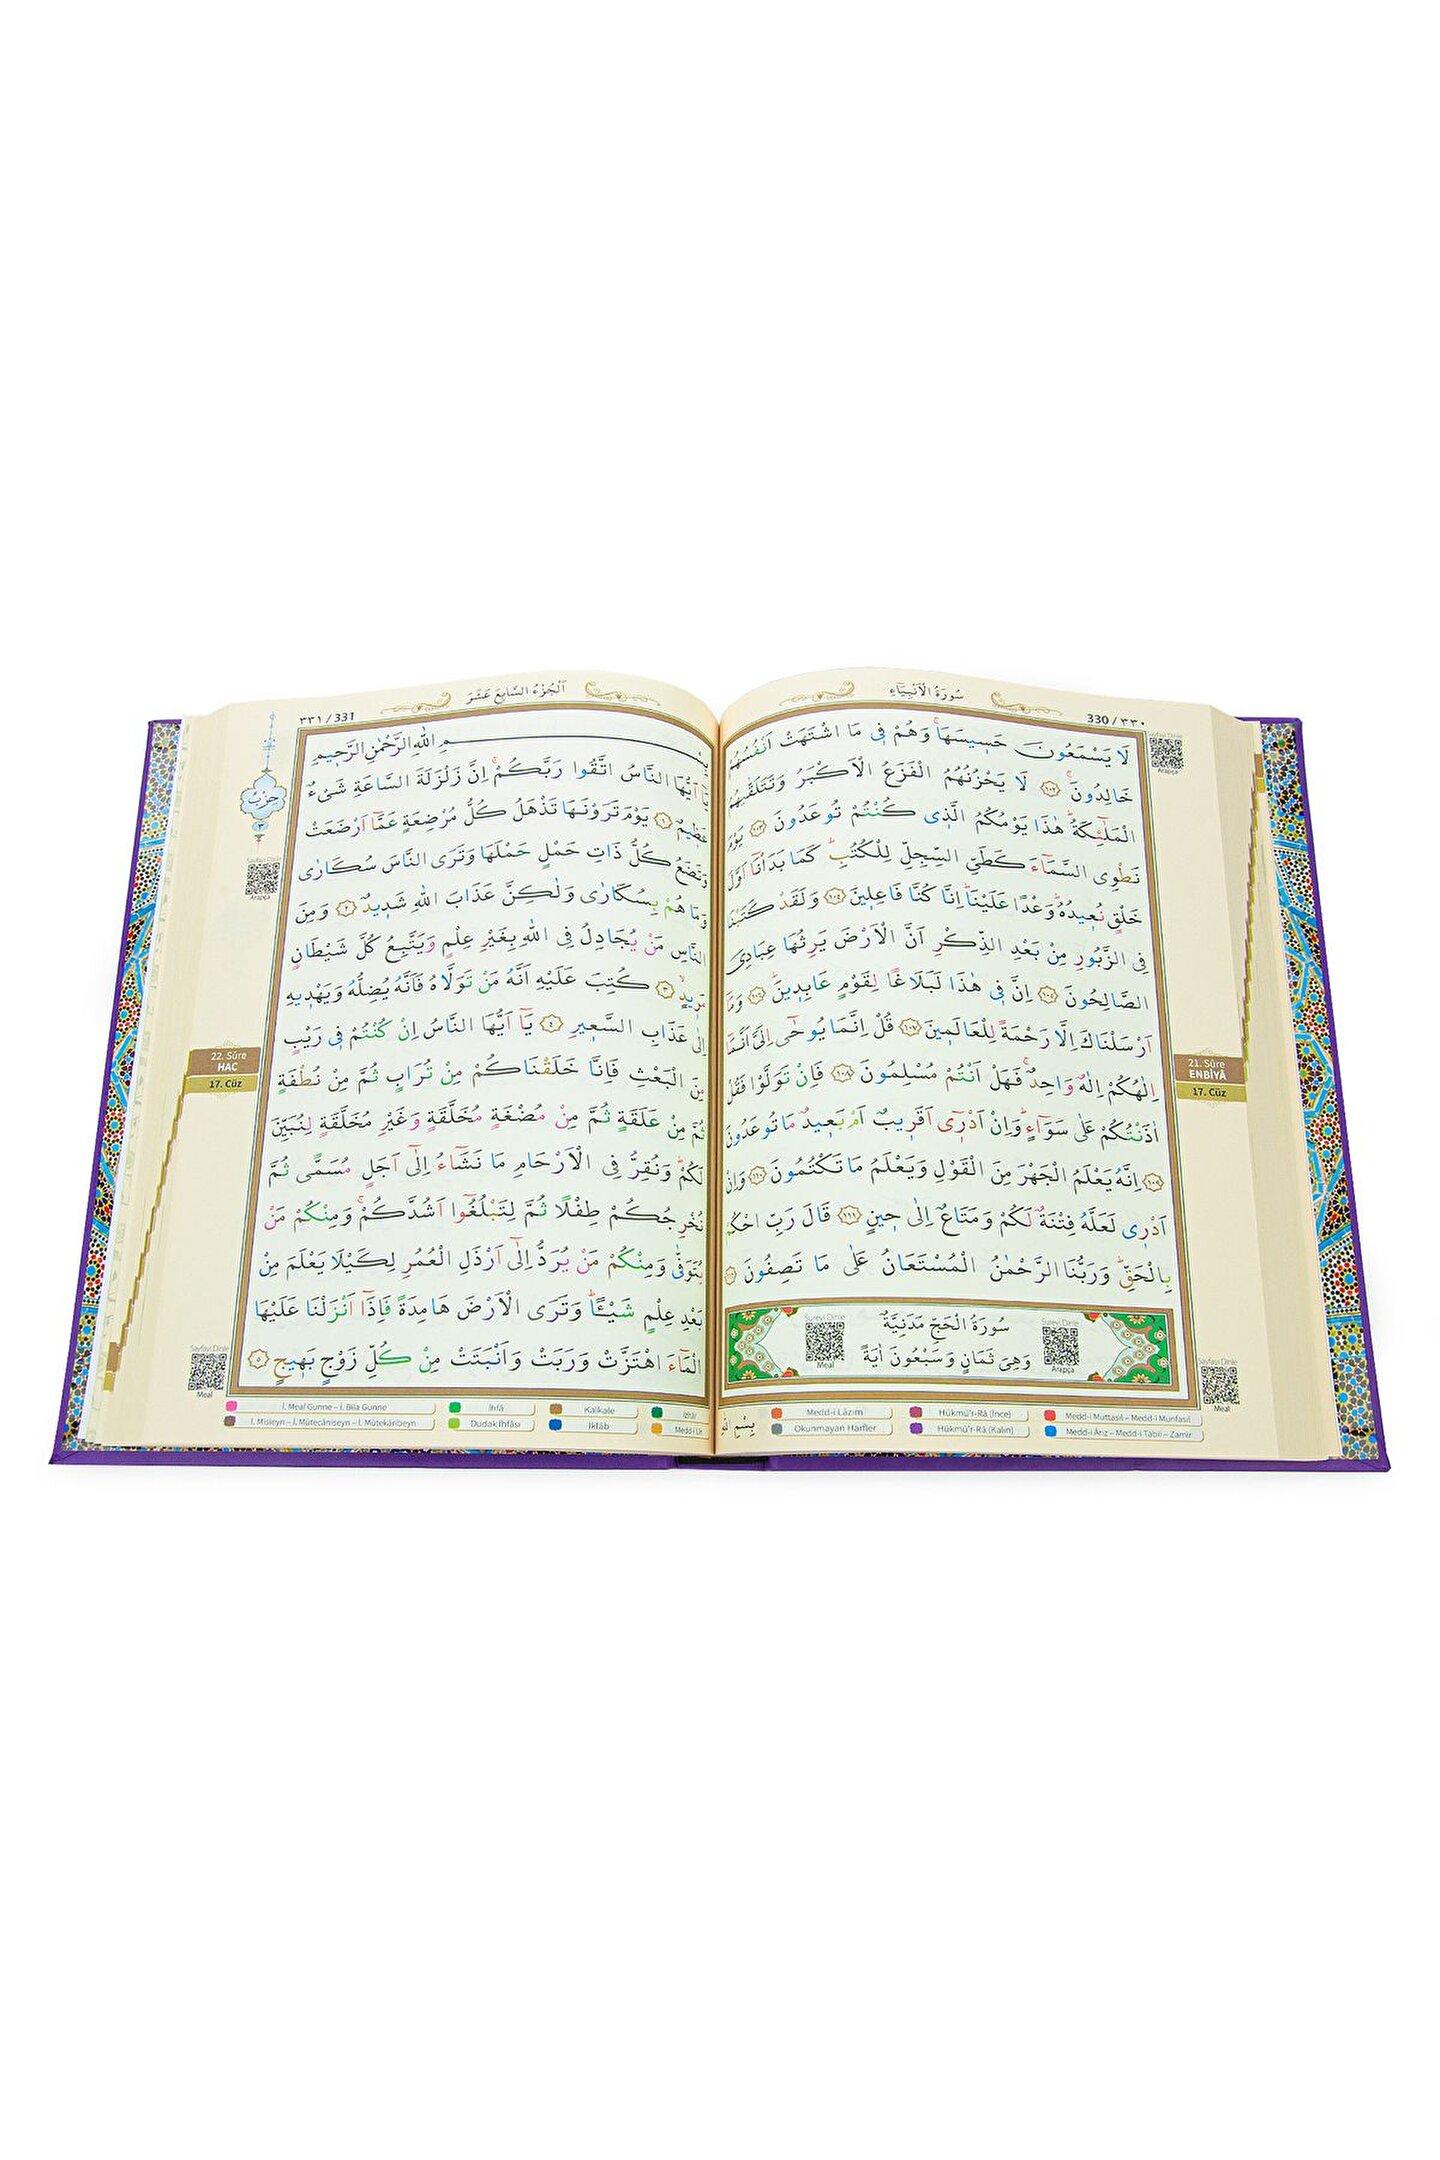 سُورَةُ الْاَنْبِيَاءِ
330 / ٣٣٠
لَا يَسْمَعُونَ حَسٖيسَهَاۚ وَهُمْ فٖى مَا اشْتَهَتْ اَنْفُسُهُمْ
خَالِدُونَۚ ﴿١٠٢﴾ لَا يَحْزُنُهُمُ الْفَزَعُ الْاَكْبَرُ وَتَتَلَقّٰيهُمُ
الْمَلٰٓئِكَةُؕ هٰذَا يَوْمُكُمُ الَّذٖى كُنْتُمْ تُوعَدُونَ ﴿١٠٣﴾ يَوْمَ
نَطْوِى السَّمَٓاءَ كَطَىِّ السِّجِلِّ لِلْكُتُبِؕ كَمَا بَدَاْنَٓا اَوَّلَ
خَلْقٍ نُعٖيدُهُؕ وَعْدًا عَلَيْنَاؕ اِنَّا كُنَّا فَاعِلٖينَ ﴿١٠٤﴾ وَلَقَدْ كَتَبْنَا
فِى الزَّبُورِ مِنْ بَعْدِ الذِّكْرِ اَنَّ الْاَرْضَ يَرِثُهَا عِبَادِىَ
الصَّالِحُونَ ﴿١٠٥﴾ اِنَّ فٖى هٰذَا لَبَلَاغًا لِقَوْمٍ عَابِدٖينَؕ ﴿١٠٦﴾ وَمَٓا
اَرْسَلْنَاكَ اِلَّا رَحْمَةً لِلْعَالَمٖينَ ﴿١٠٧﴾ قُلْ اِنَّمَا يُوحٰٓى اِلَىَّ اَنَّمَٓا
اِلٰهُكُمْ اِلٰهٌ وَاحِدٌۚ فَهَلْ اَنْتُمْ مُسْلِمُونَ ﴿١٠٨﴾ فَاِنْ تَوَلَّوْا فَقُلْ
اٰذَنْتُكُمْ عَلٰى سَوَٓاءٍؕ وَاِنْ اَدْرٖٓى اَقَرٖيبٌ اَمْ بَعٖيدٌ مَا تُوعَدُونَ
﴿١٠٩﴾ اِنَّهُ يَعْلَمُ الْجَهْرَ مِنَ الْقَوْلِ وَيَعْلَمُ مَا تَكْتُمُونَ ﴿١١٠﴾ وَاِنْ
اَدْرٖى لَعَلَّهُ فِتْنَةٌ لَكُمْ وَمَتَاعٌ اِلٰى حٖينٍ ﴿١١١﴾ قَالَ رَبِّ احْكُمْ
بِالْحَقِّؕ وَرَبُّنَا الرَّحْمٰنُ الْمُسْتَعَانُ عَلٰى مَا تَصِفُونَ ﴿١١٢﴾
سُورَةُ الْحَجِّ مَدَنِيَّةٌ
وَهِىَ ثَمَانٍ وَسَبْعُونَ اٰيَةً
Sureyi Dinle
Meal
Sureyi Dinle
Arapça
Sayfayı Dinle
Arapça
21. Sûre
ENBİYÂ
17. Cüz
Sayfayı Dinle
Meal
بِسْمِ اللّٰهِ
Medd-i Lâzım
Hükmü'r-Râ (İnce)
Medd-i Muttasıl – Medd-i Munfasıl
Okunmayan Harfler
Hükmü'r-Râ (Kalın)
Medd-i Ârız – Medd-i Tabii – Zamir
اَلْجُزْءُ السَّابِعَ عَشَرَ
٣٣١ / 331
بِسْمِ اللّٰهِ الرَّحْمٰنِ الرَّحٖيمِ
يَٓا اَيُّهَا النَّاسُ اتَّقُوا رَبَّكُمْۚ اِنَّ زَلْزَلَةَ السَّاعَةِ شَىْءٌ
عَظٖيمٌ ﴿١﴾ يَوْمَ تَرَوْنَهَا تَذْهَلُ كُلُّ مُرْضِعَةٍ عَمَّٓا اَرْضَعَتْ
وَتَضَعُ كُلُّ ذَاتِ حَمْلٍ حَمْلَهَا وَتَرَى النَّاسَ سُكَارٰى
وَمَا هُمْ بِسُكَارٰى وَلٰكِنَّ عَذَابَ اللّٰهِ شَدٖيدٌ ﴿٢﴾ وَمِنَ
النَّاسِ مَنْ يُجَادِلُ فِى اللّٰهِ بِغَيْرِ عِلْمٍ وَيَتَّبِعُ كُلَّ شَيْطَانٍ
مَرٖيدٍۙ ﴿٣﴾ كُتِبَ عَلَيْهِ اَنَّهُ مَنْ تَوَلَّاهُ فَاَنَّهُ يُضِلُّهُ وَيَهْدٖيهِ
اِلٰى عَذَابِ السَّعٖيرِ ﴿٤﴾ يَٓا اَيُّهَا النَّاسُ اِنْ كُنْتُمْ فٖى رَيْبٍ
مِنَ الْبَعْثِ فَاِنَّا خَلَقْنَاكُمْ مِنْ تُرَابٍ ثُمَّ مِنْ نُطْفَةٍ
ثُمَّ مِنْ عَلَقَةٍ ثُمَّ مِنْ مُضْغَةٍ مُخَلَّقَةٍ وَغَيْرِ مُخَلَّقَةٍ لِنُبَيِّنَ
لَكُمْؕ وَنُقِرُّ فِى الْاَرْحَامِ مَا نَشَٓاءُ اِلٰٓى اَجَلٍ مُسَمًّى ثُمَّ
نُخْرِجُكُمْ طِفْلًا ثُمَّ لِتَبْلُغُٓوا اَشُدَّكُمْۚ وَمِنْكُمْ مَنْ
يُتَوَفّٰى وَمِنْكُمْ مَنْ يُرَدُّ اِلٰٓى اَرْذَلِ الْعُمُرِ لِكَيْلَا يَعْلَمَ مِنْ
بَعْدِ عِلْمٍ شَيْـًٔاؕ وَتَرَى الْاَرْضَ هَامِدَةً فَاِذَٓا اَنْزَلْنَا عَلَيْهَا
الْمَٓاءَ اهْتَزَّتْ وَرَبَتْ وَاَنْبَتَتْ مِنْ كُلِّ زَوْجٍ بَهٖيجٍ ﴿٥﴾
حِزْبْ
٣
Sayfayı Dinle
Arapça
22. Sûre
HAC
17. Cüz
Sayfayı Dinle
Meal
İ. Meal Gunne – İ. Bila Gunne
İhfâ
Kalkale
İzhâr
İ. Misleyn – İ. Mütecâniseyn – İ. Mütekâribeyn
Dudak İhfâsı
İklâb
Medd-i Lîn